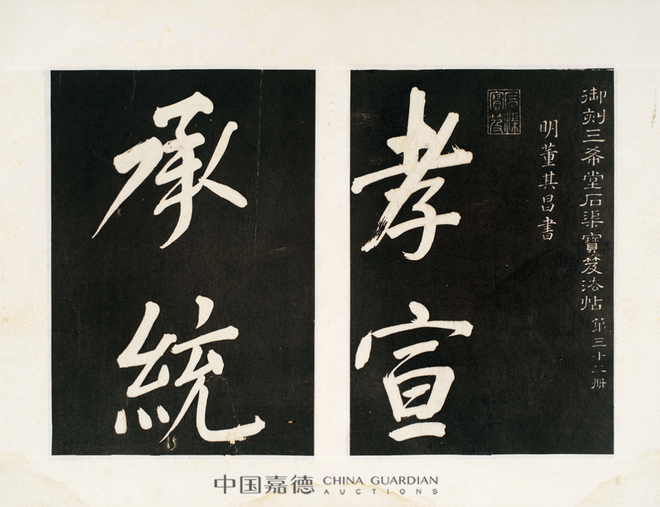 御刻三希堂石渠寶笈法帖 第三十二册
明董其昌書
石渠寶笈
孝宣
承統
中国嘉德 CHINA GUARDIAN AUCTIONS